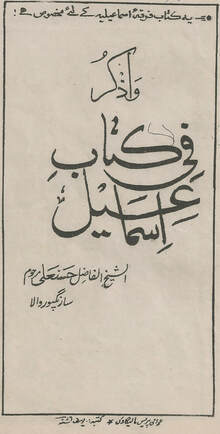 یہ کتاب فرقہٴ اسماعیلیہ کے لئے مخصوص ہے:
وَاذْكُرْ
فِي كِتَابِ
اسماعيل
الشیخ الفاضل حسنعلی مرحوم
سارنگپور والا
پریس مالیگاؤں